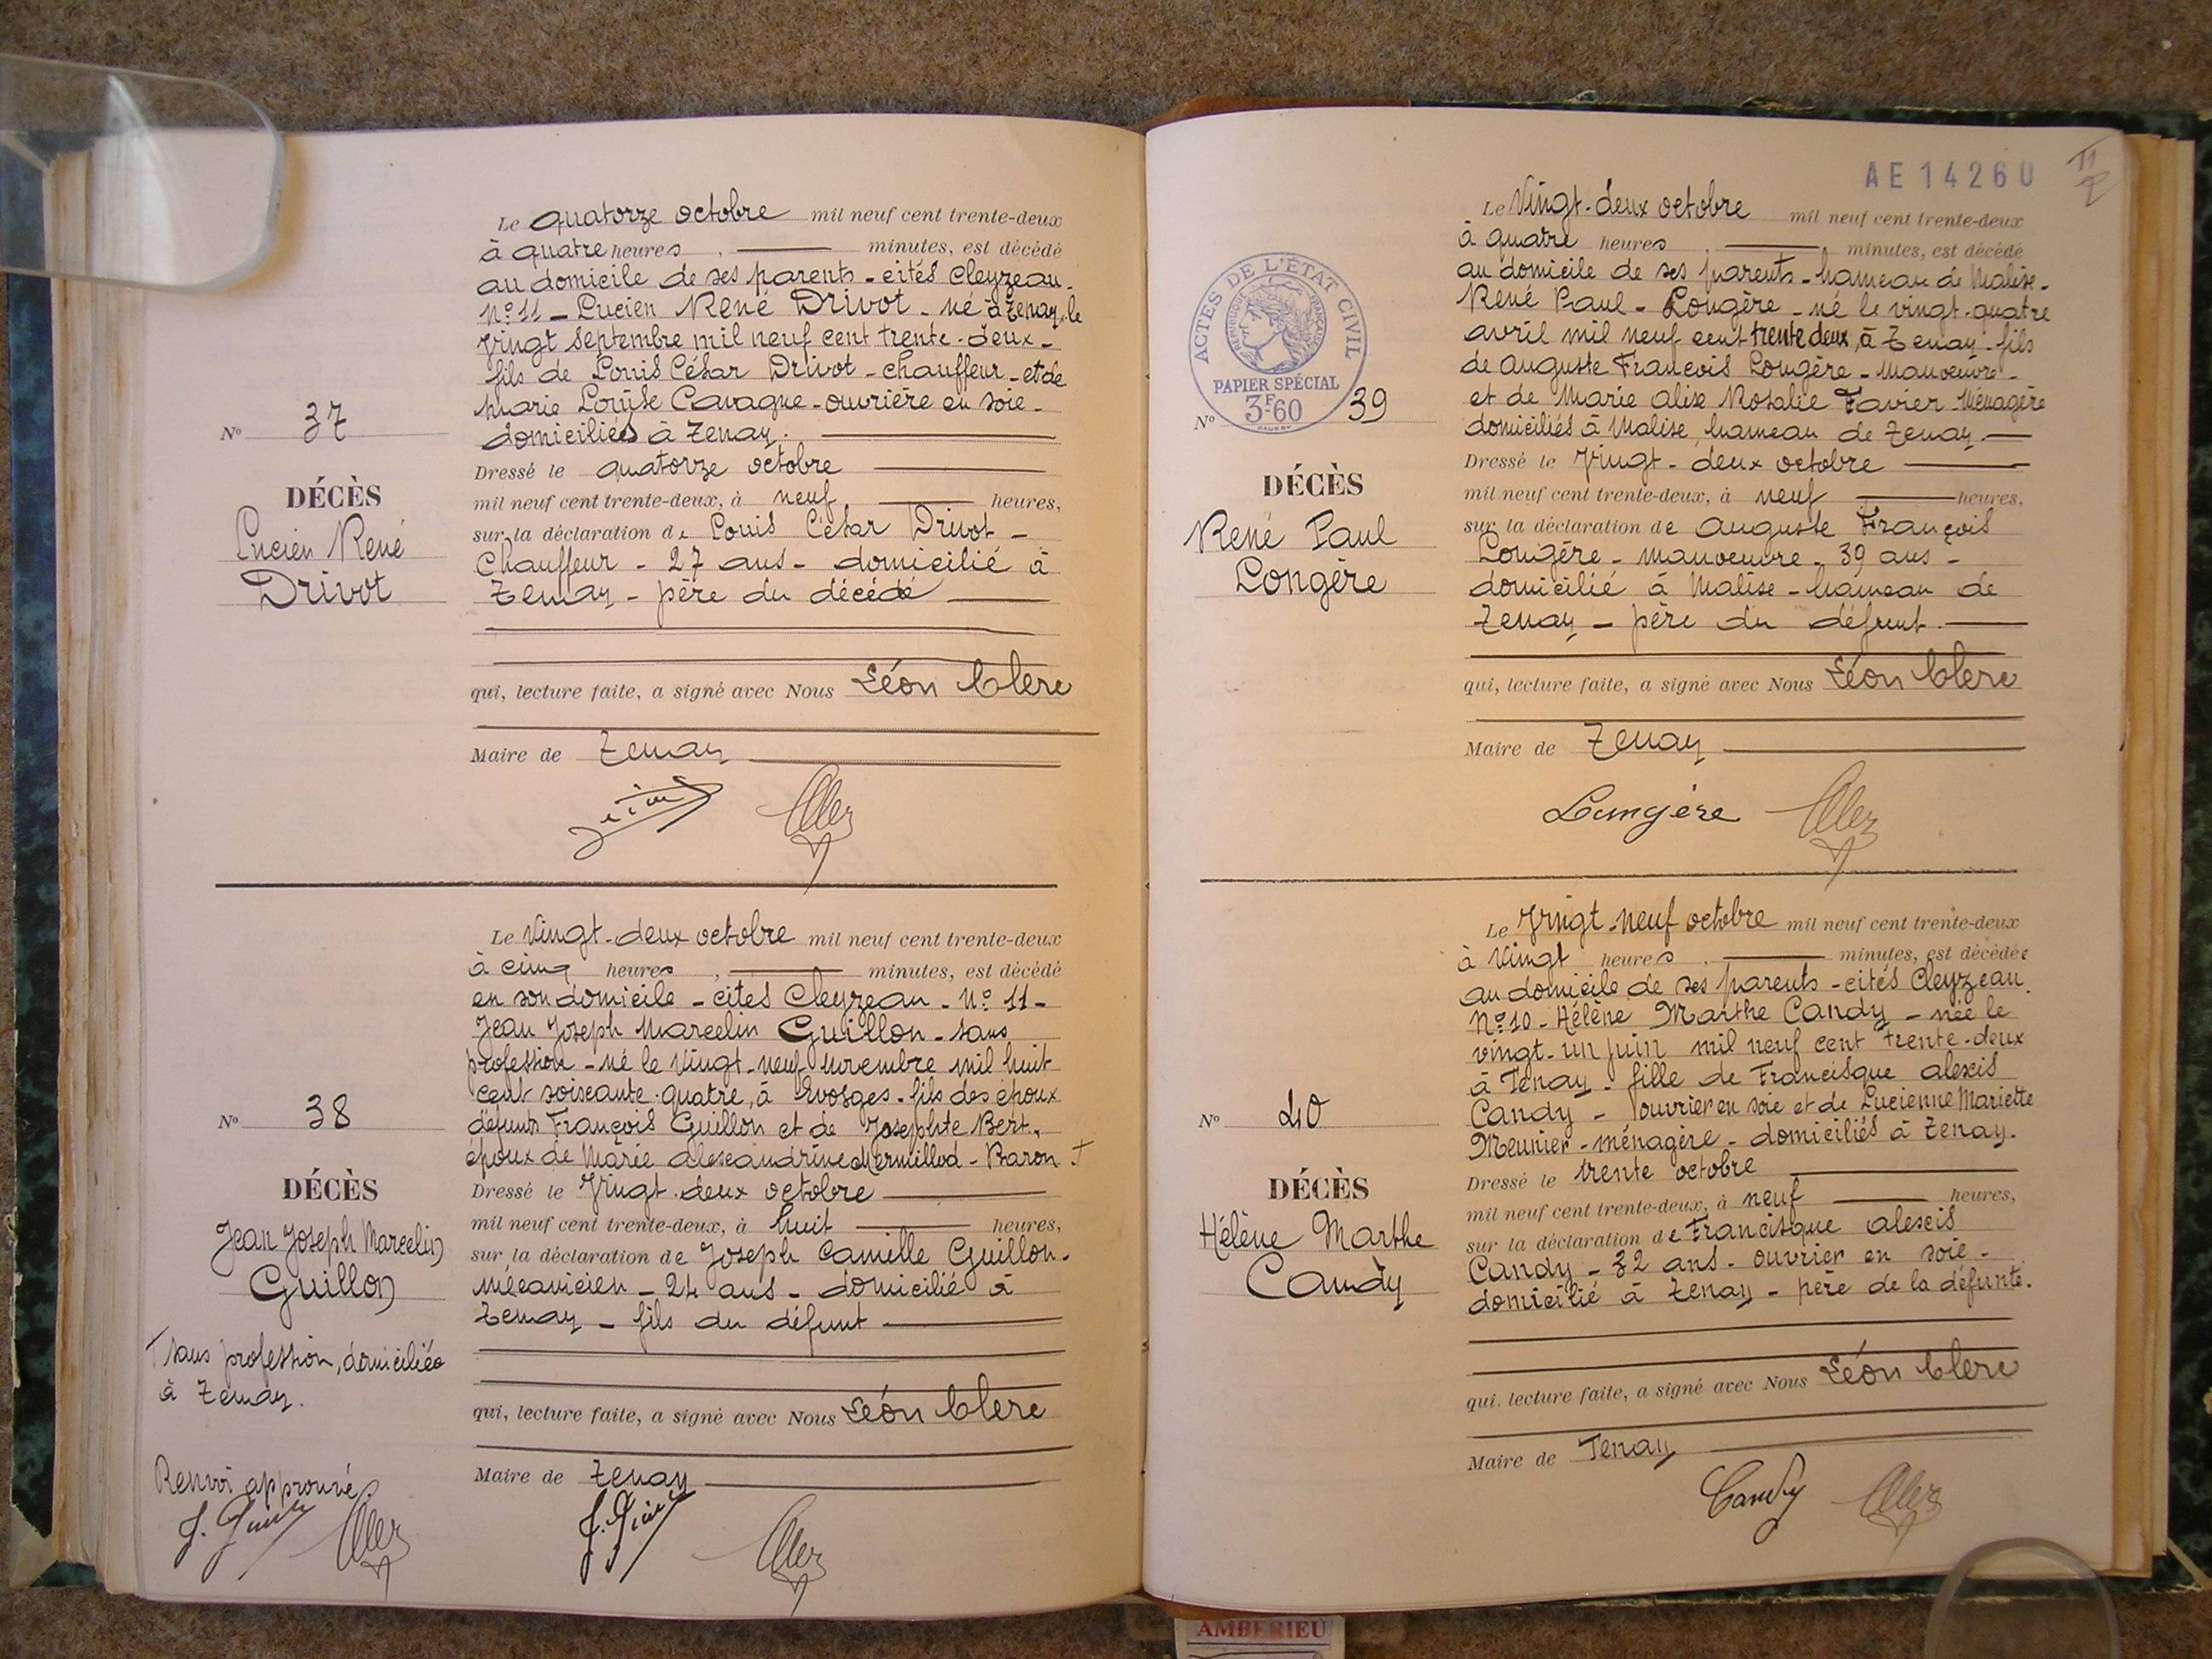 Le quatorze octobre mil neuf cent trente-deux
à quatre heures, minutes, est décédé
au domicile de ses parents - cités Cleyzeau -
N° 11 - Lucien René Drivot - né à Tenay, le
vingt septembre mil neuf cent trente-deux -
fils de Louis César Drivot - chauffeur - et de
Marie Louise Cavagne - ouvrière en soie -
domiciliés à Tenay.
N° 37
DÉCÈS
Lucien René
Drivot
Dressé le quatorze octobre
mil neuf cent trente-deux, à neuf heures,
sur la déclaration de Louis César Drivot -
Chauffeur - 27 ans - domicilié à
Tenay - père du décédé
qui, lecture faite, a signé avec Nous Léon Clerc
Maire de Tenay
Le Vingt-deux octobre mil neuf cent trente-deux
à cinq heures, minutes, est décédé
en son domicile - cités Cleyzeau - N° 11 -
Jean Joseph Marcelin Guillon - sans
profession - né le Vingt-neuf novembre mil huit
cent soixante-quatre, à Evosges - fils des époux
défunts François Guillon et de Josephte Bert,
époux de Marie Alexandrine Mermillod-Baron †
N° 38
DÉCÈS
Jean Joseph Marcelin
Guillon
† sans profession, domiciliés
à Tenay.
Renvoi approuvé
Dressé le Vingt-deux octobre
mil neuf cent trente-deux, à huit heures,
sur la déclaration de Joseph Camille Guillon -
mécanicien - 24 ans - domicilié à
Tenay - fils du défunt
qui, lecture faite, a signé avec Nous Léon Clerc
Maire de Tenay
AE 14260
ACTES DE L'ÉTAT CIVIL
RÉPUBLIQUE FRANÇAISE
PAPIER SPÉCIAL
3F60
Le Vingt-deux octobre mil neuf cent trente-deux
à quatre heures, minutes, est décédé
au domicile de ses parents - hameau de Malise -
René Paul - Longère - né le vingt-quatre
avril mil neuf cent trente deux, à Tenay - fils
de Auguste François Longère - Manoeuvre -
et de Marie Alise Rosalie Favier - Ménagère
domiciliés à Malise, hameau de Tenay
N° 39
DÉCÈS
René Paul
Longère
Dressé le Vingt-deux octobre
mil neuf cent trente-deux, à neuf heures,
sur la déclaration de Auguste François
Longère - manoeuvre - 39 ans -
domicilié à Malise - hameau de
Tenay - père du défunt.
qui, lecture faite, a signé avec Nous Léon Clerc
Maire de Tenay
Longère
Le Vingt-neuf octobre mil neuf cent trente-deux
à Vingt heures, minutes, est décédée
au domicile de ses parents - cités Cleyzeau.
N° 10 - Hélène Marthe Candy - née le
vingt-un juin mil neuf cent trente-deux
à Tenay - fille de Francisque Alexis
Candy - ouvrier en soie et de Lucienne Mariette
Meunier - ménagère - domiciliés à Tenay.
N° 40
DÉCÈS
Hélène Marthe
Candy
Dressé le trente octobre
mil neuf cent trente-deux, à neuf heures,
sur la déclaration de Francisque Alexis
Candy - 32 ans - ouvrier en soie -
domicilié à Tenay - père de la défunte.
qui, lecture faite, a signé avec Nous Léon Clerc
Maire de Tenay
Candy
AMBERIEU